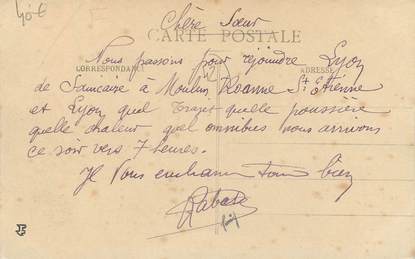 40 €
Chère Sœur
CARTE POSTALE
Nous passons pour rejoindre Lyon
CORRESPONDANCE
ADRESSE
de Saincaise à Moulin, Roanne St Etienne
et Lyon quel trajet quelle poussière
quelle chaleur quel omnibus nous arrivons
ce soir vers 7 heures.
Je vous embrasse tous bien